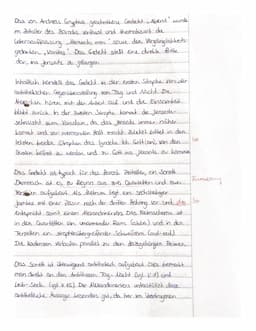 Das von Andreas Gryphius geschriebene Gedicht „Abend" wurde
im Zeitalter des Barocks verfasst und thematisiert die
Lebensauffassung „Memento mori" sowie den Vergänglichkeits-
gedanken „Vanitas". Das Gedicht stellt eine direkte Bitte
dar, ins Jenseits zu gelangen.
Inhaltlich handelt das Gedicht in der ersten Strophe von der
antithetischen Gegenüberstellung von Tag und Nacht. Die
Menschen hören mit der Arbeit auf und die Einsamkeit
bleibt zurück. In der zweiten Strophe kommt die Jenseits-
sehnsucht zum Vorschein, da das Jenseits immer näher
kommt und
letzten beiden Strophen das lyrische Ich Gott an, von den
befreit zu werden und zu Gott ins Jenseits zu kommen.
Das Gedicht ist typisch für das Barock
Demnach ist es zu Beginn aus zwei Quartetten und zwei
Terzetten aufgebaut. Als Metrum liegt ein sechshebiger
Jambus mit einer Zäsur nach der dritten Hebung vor und
entspricht somit einem Alexandriner. Das Reimschema ist
in den Quartetten ein umarmender Reim (abba) und in den
Terzetten ein Schweifreim (ccd eed).
Die Kadenzen verlaufen parallel zu den dazugehörigen Reimen.
Das Sonett ist überwiegend antithetisch aufgebaut. Dies bemerkt
man direkt an den Antithesen Tag-Nacht (vgl. V. 1) und
Der Alexandriner unterstützt diese
antithetische Aussage besonders gut, da hier im Vordergrund